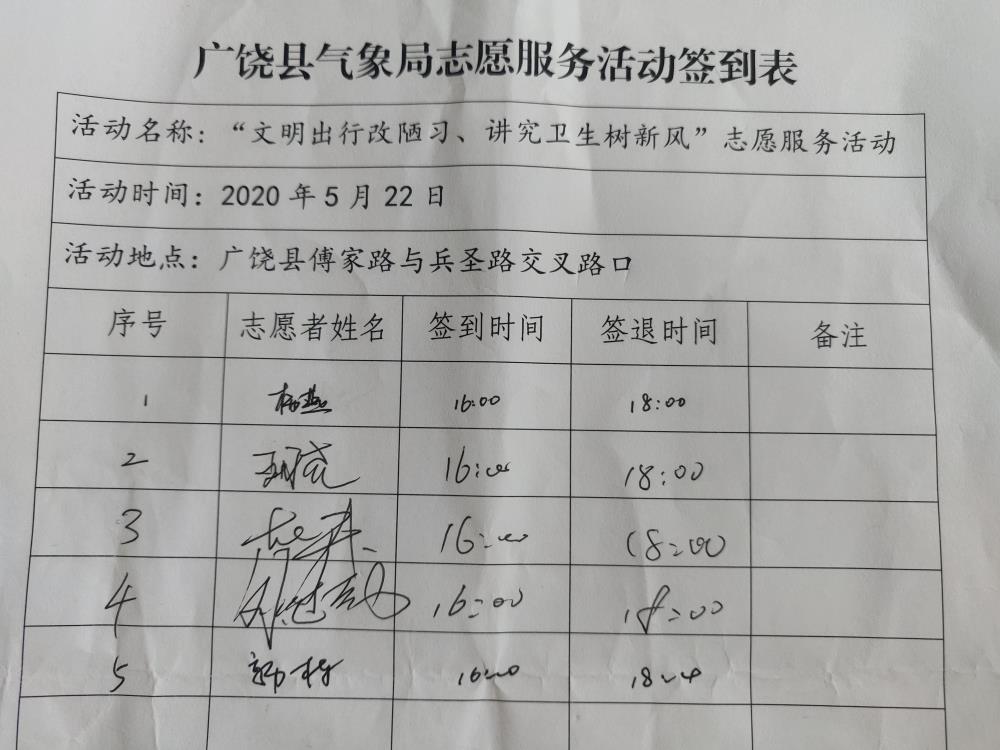 广饶县气象局志愿服务活动签到表
活动名称：“文明出行改陋习、讲究卫生树新风”志愿服务活动
活动时间：2020 年 5 月 22 日
活动地点：广饶县傅家路与兵圣路交叉路口
序号 志愿者姓名 签到时间 签退时间 备注
1 杨燕 16:00 18:00
2 16:00 18:00
3 16:00 18:00
4 16:00 18:00
5 16:00 18:00